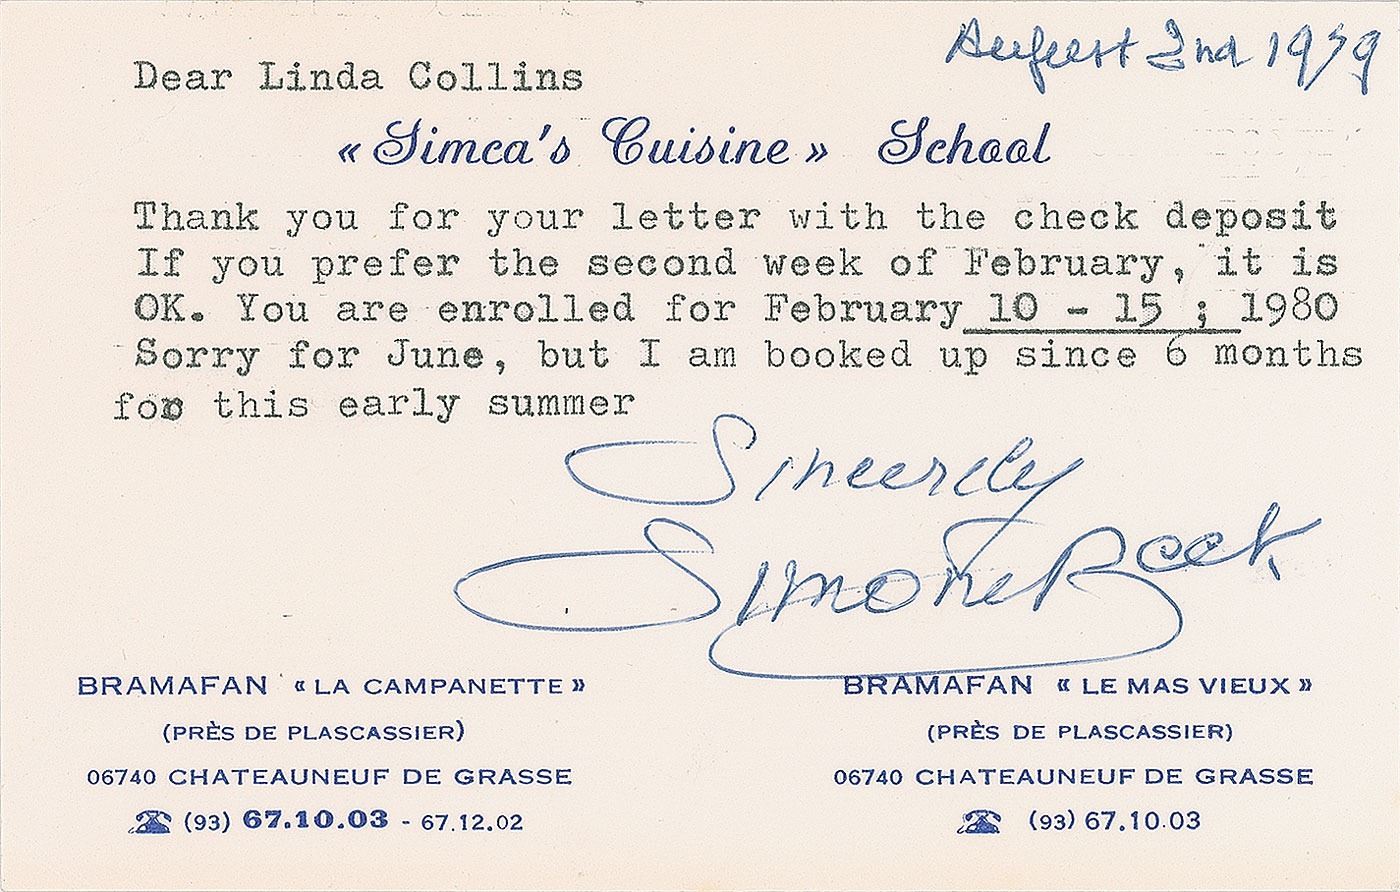 August 2nd 1979
Dear Linda Collins
« Simca's Cuisine » School
Thank you for your letter with the check deposit
If you prefer the second week of February, it is
OK. You are enrolled for February 10 - 15 ; 1980
Sorry for June, but I am booked up since 6 months
for this early summer
Sincerely
Simone Beck
BRAMAFAN « LA CAMPANETTE »
(PRÈS DE PLASCASSIER)
06740 CHATEAUNEUF DE GRASSE
☎ (93) 67.10.03 - 67.12.02
BRAMAFAN « LE MAS VIEUX »
(PRÈS DE PLASCASSIER)
06740 CHATEAUNEUF DE GRASSE
☎ (93) 67.10.03